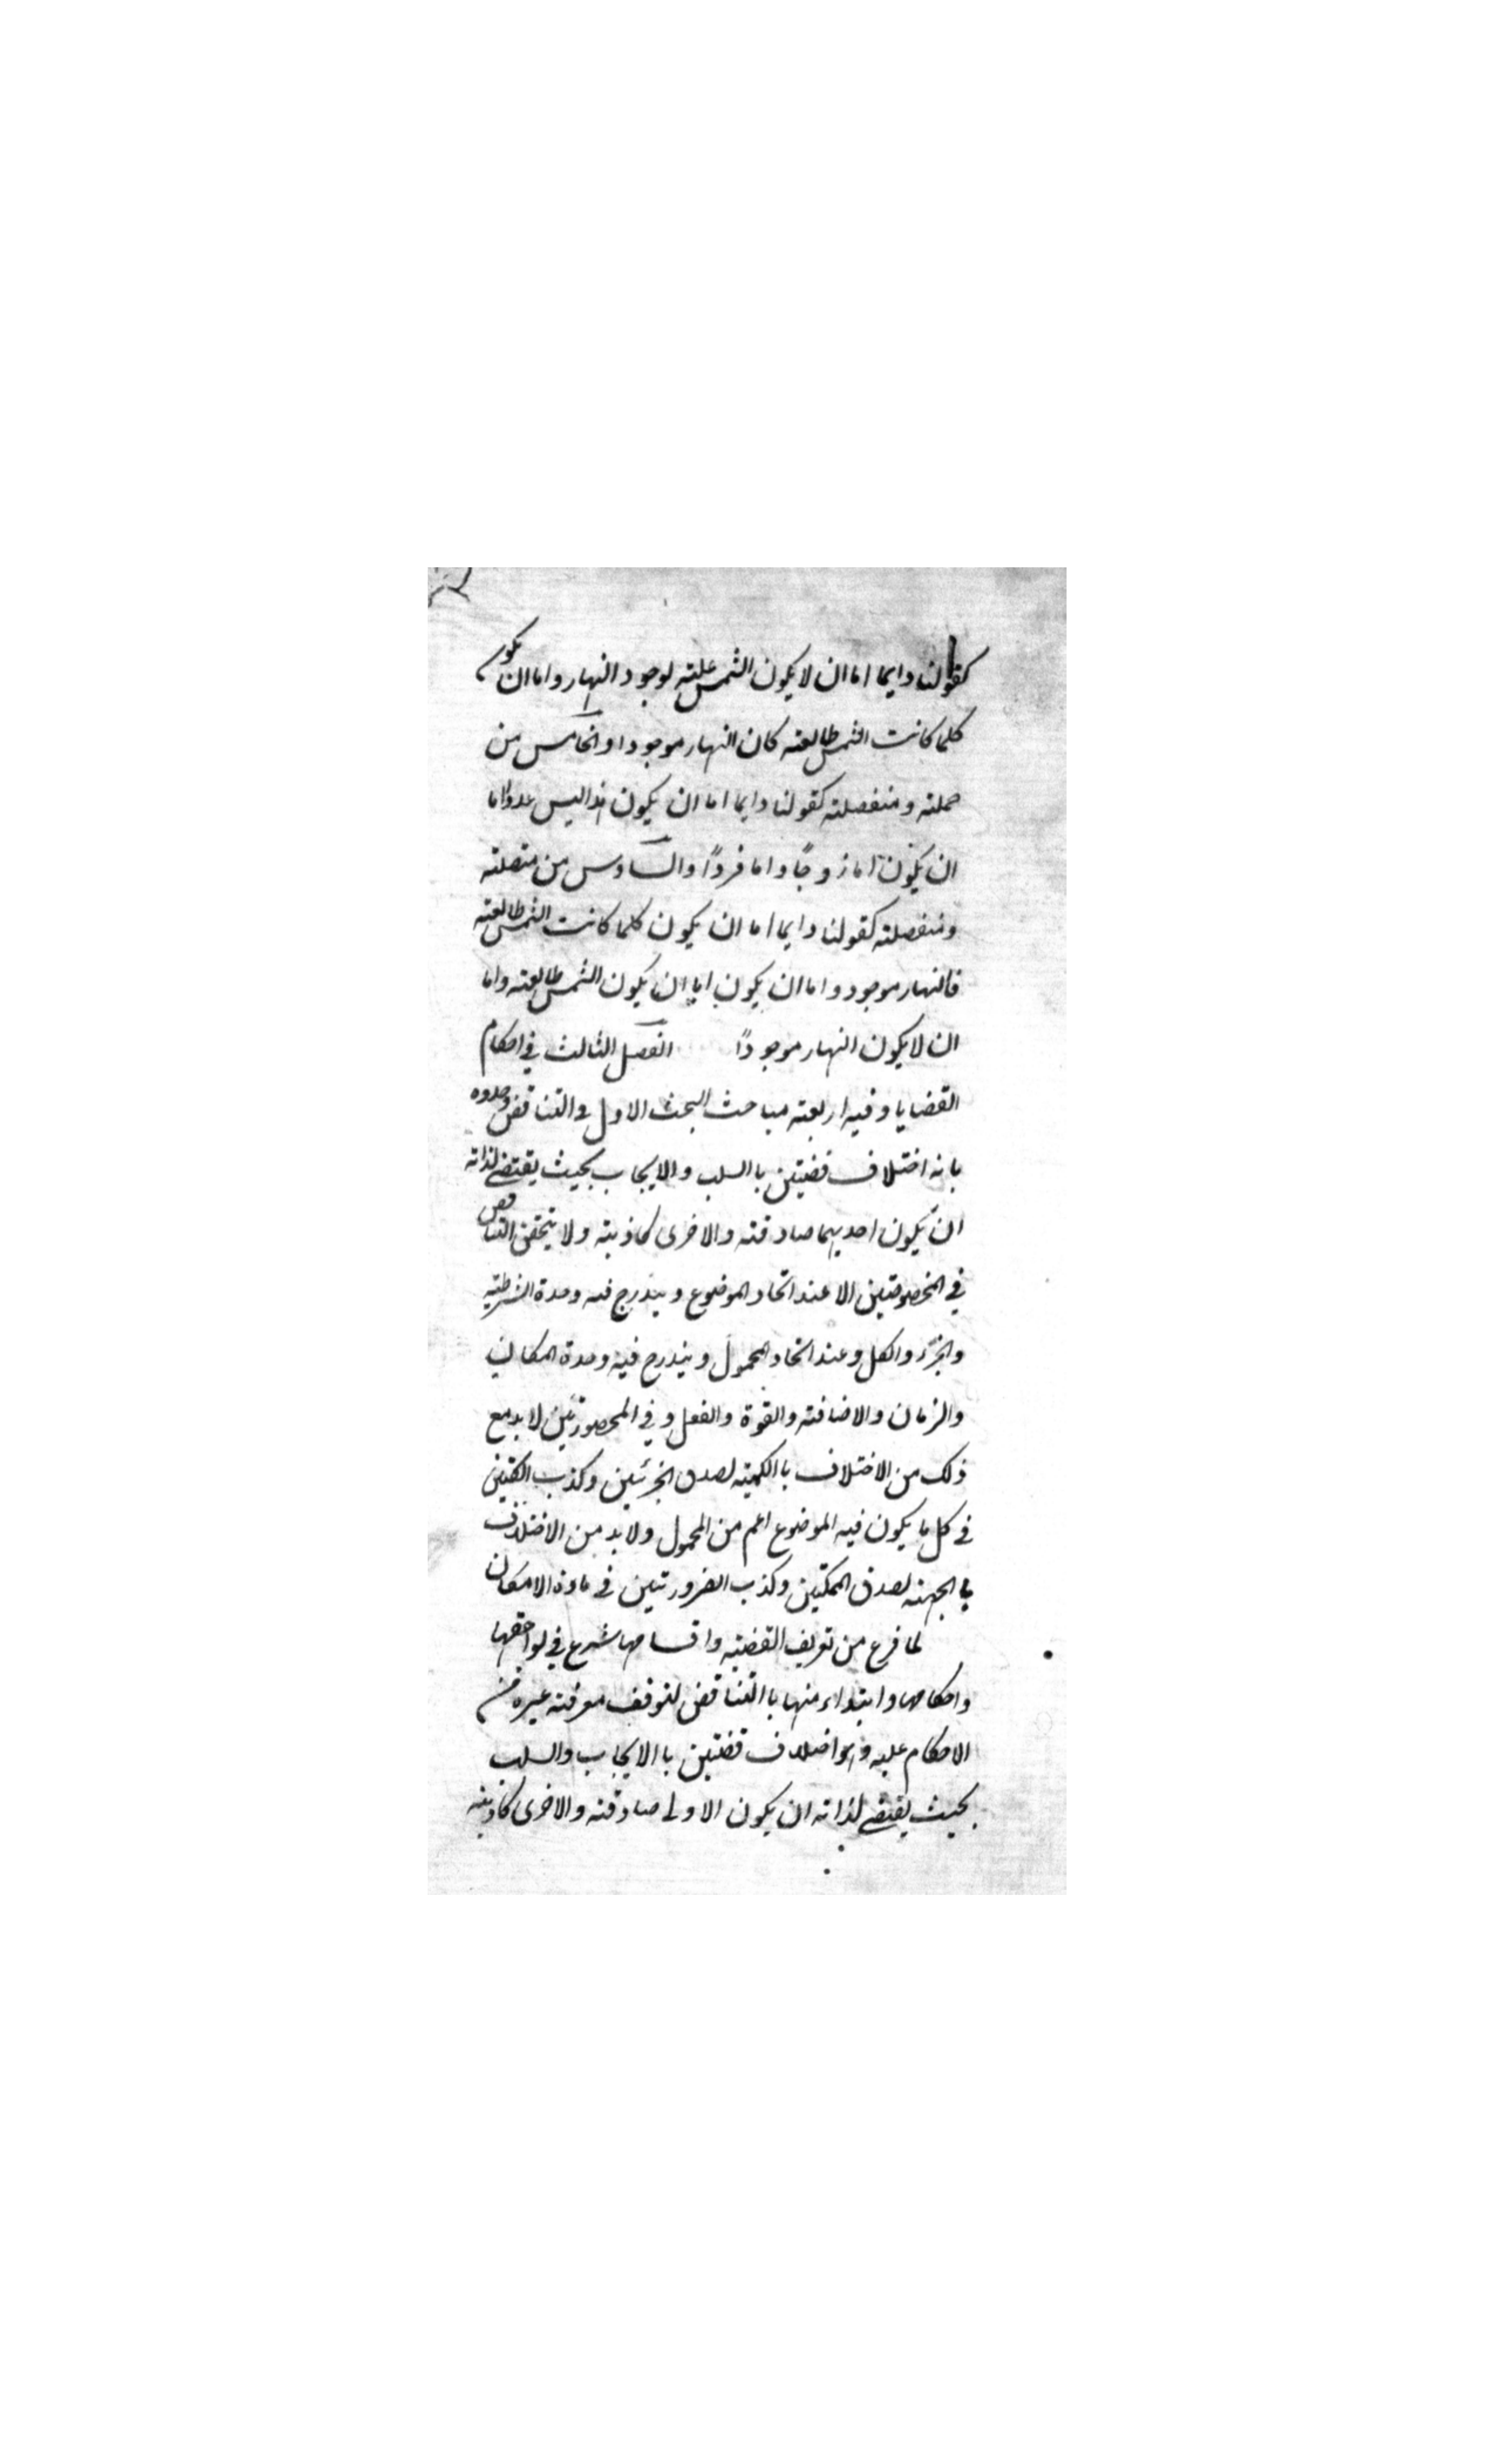 كقولنا دايما اما ان لا يكون الشمس علته لوجود النهار واما ان يكون
كلما كانت الشمس طالعته كان النهار موجودا والخامس من
حملته ومنفصلته كقولنا دايما اما ان يكون هذا ليس عددا واما
ان يكون اما زوجًا واما فردًا والسادس من متصلته
ومنفصلته كقولنا دايما اما ان يكون كلما كانت الشمس طالعته
فالنهار موجود واما ان يكون اما ان يكون الشمس طالعته واما
ان لا يكون النهار موجودًا الفصل الثالث في احكام
القضايا وفيه اربعته مباحث البحث الاول في التناقض وحدوه
بانه اختلاف قضيتين باالسلب والايجاب بحيث يقتضے لذاته
ان يكون احديهما صادقته والاخرى كاذبته ولا يتحقق التناقض
في المخصوصتين الا عند اتحاد الموضوع ويندرج فيه وحدة الشرطيته
والجزء والكل وعند اتحاد المحمول ويندرج فيه وحدة المكان
والزمان والاضافته والقوة والفعل وفي المحصورتين لا بد مع
ذلك من الاختلاف باالكميته لصدق الجزئيين وكذب الكليتين
في كل ما يكون فيه الموضوع اعم من المحمول ولا بد من الاختلاف
باالجهته لصدق الممكنتين وكذب الضرورتين في مادة الامكان
لما فرع من تعريف القضيته واقسامها شرع في لواحقها
واحكامها وابتداء منها باالتناقض لتوقف معرفته غيره من
الاحكام عليه وهو اختلاف قضتين باالايجاب والسلب
بحيث يقتضے لذاته ان يكون الاولى صادقته والاخرى كاذبته